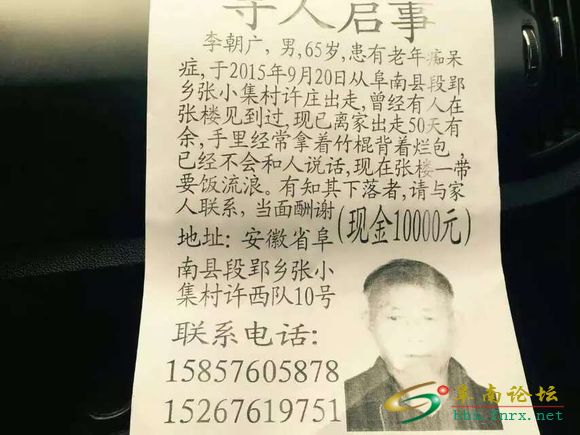 寻人启事
李朝广，男，65岁，患有老年痴呆
症，于2015年9月20日从阜南县段郢
乡张小集村许庄出走，曾经有人在
张楼见到过，现已离家出走50天有
余，手里经常拿着竹棍背着烂包，
已经不会和人说话，现在张楼一带
要饭流浪。有知其下落者，请与家
人联系，当面酬谢(现金10000元)
地址：安徽省阜
南县段郢乡张小
集村许西队10号
联系电话：
15857605878
15267619751
阜南论坛
bbs.fnrx.net